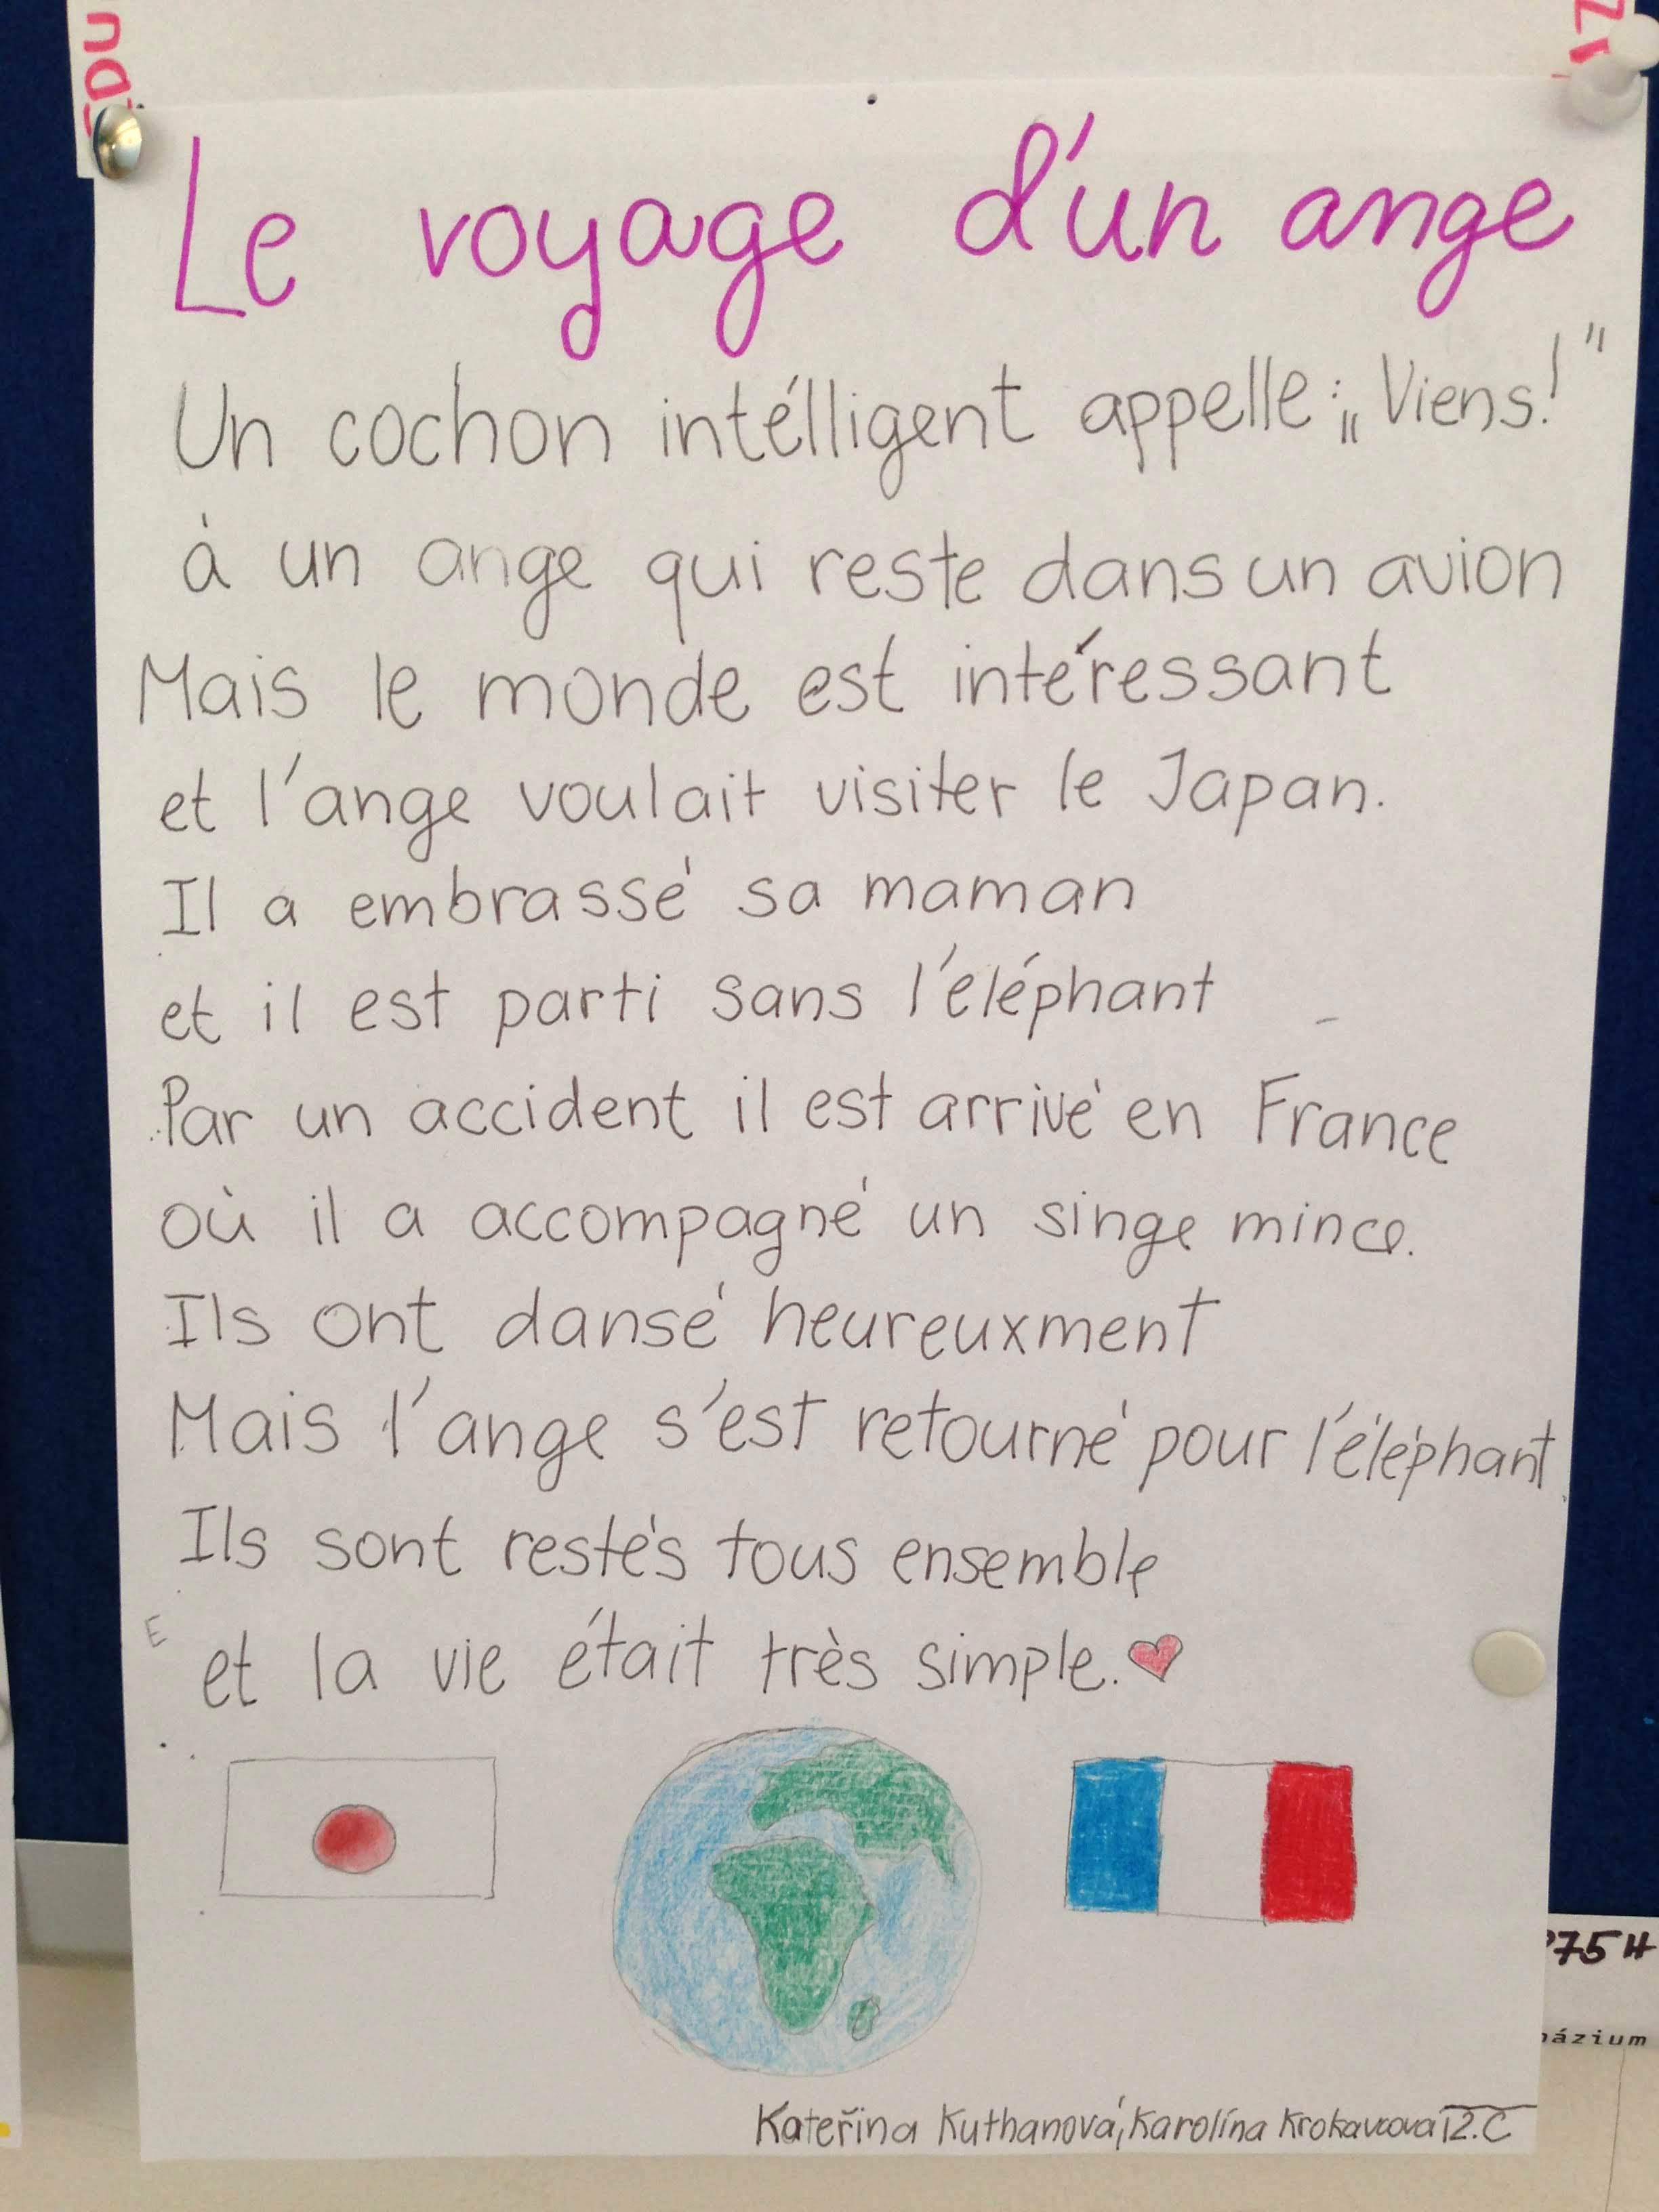 Le voyage d'un ange
Un cochon intélligent appelle: „Viens!"
à un ange qui reste dans un avion
Mais le monde est intéressant
et l'ange voulait visiter le Japan.
Il a embrassé sa maman
et il est parti sans l'éléphant
Par un accident il est arrivé en France
où il a accompagné un singe mince.
Ils ont dansé heureuxment
Mais l'ange s'est retourné pour l'éléphant
Ils sont restés tous ensemble
E
et la vie était très simple.
75 H
Kateřina Kuthanová, Karolína 2.C